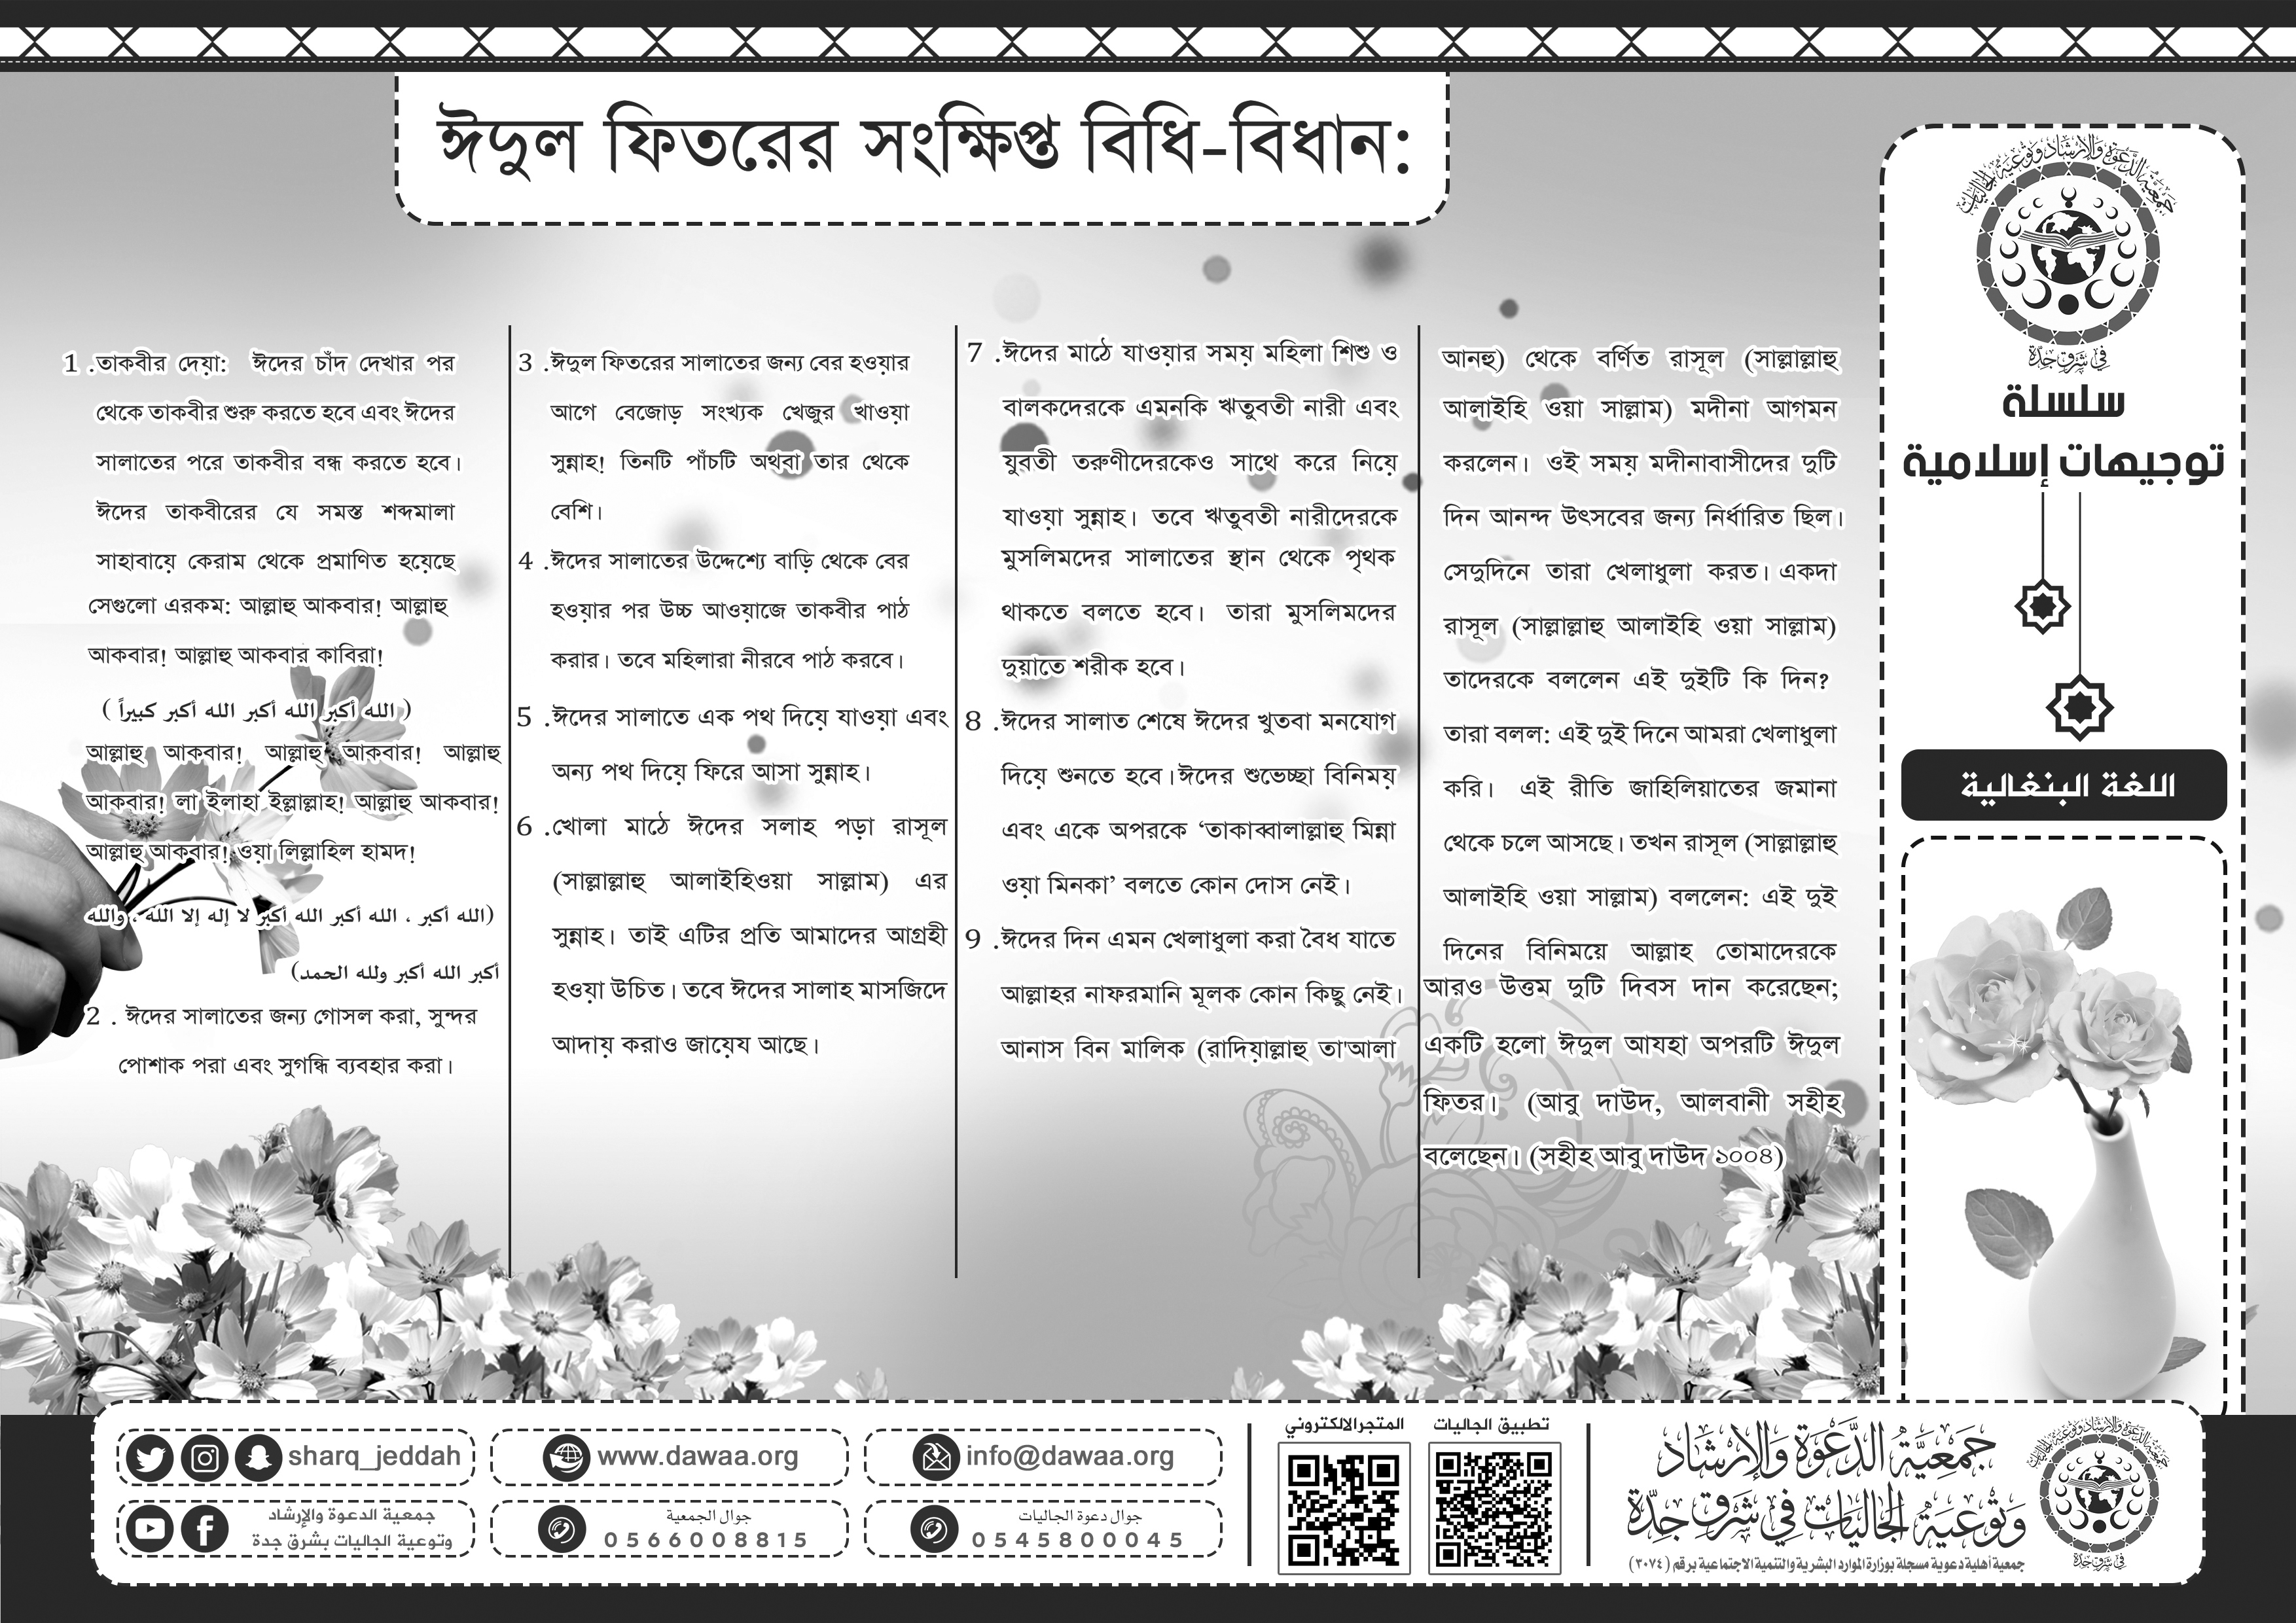 ঈদুল ফিতরের সংক্ষিপ্ত বিধি-বিধান:
1 .তাকবীর দেয়া: ঈদের চাঁদ দেখার পর
থেকে তাকবীর শুরু করতে হবে এবং ঈদের
সালাতের পরে তাকবীর বন্ধ করতে হবে।
ঈদের তাকবীরের যে সমস্ত শব্দমালা
সাহাবায়ে কেরাম থেকে প্রমাণিত হয়েছে
সেগুলো এরকম: আল্লাহু আকবার! আল্লাহু
আকবার! আল্লাহু আকবার কাবিরা!
( الله أكبر الله أكبر الله أكبر كبيراً )
আল্লাহু আকবার! আল্লাহু আকবার! আল্লাহু
আকবার! লা ইলাহা ইল্লাল্লাহ! আল্লাহু আকবার!
আল্লাহু আকবার! ওয়া লিল্লাহিল হামদ!
(الله أكبر ، الله أكبر الله أكبر لا إله إلا الله ، والله
أكبر الله أكبر ولله الحمد)
2 . ঈদের সালাতের জন্য গোসল করা, সুন্দর
পোশাক পরা এবং সুগন্ধি ব্যবহার করা।
3 .ঈদুল ফিতরের সালাতের জন্য বের হওয়ার
আগে বেজোড় সংখ্যক খেজুর খাওয়া
সুন্নাহ! তিনটি পাঁচটি অথবা তার থেকে
বেশি।
4 .ঈদের সালাতের উদ্দেশ্যে বাড়ি থেকে বের
হওয়ার পর উচ্চ আওয়াজে তাকবীর পাঠ
করার। তবে মহিলারা নীরবে পাঠ করবে।
5 .ঈদের সালাতে এক পথ দিয়ে যাওয়া এবং
অন্য পথ দিয়ে ফিরে আসা সুন্নাহ।
6 .খোলা মাঠে ঈদের সলাহ পড়া রাসূল
(সাল্লাল্লাহু আলাইহিওয়া সাল্লাম) এর
সুন্নাহ। তাই এটির প্রতি আমাদের আগ্রহী
হওয়া উচিত। তবে ঈদের সালাহ মাসজিদে
আদায় করাও জায়েয আছে।
7 .ঈদের মাঠে যাওয়ার সময় মহিলা শিশু ও
বালকদেরকে এমনকি ঋতুবতী নারী এবং
যুবতী তরুণীদেরকেও সাথে করে নিয়ে
যাওয়া সুন্নাহ। তবে ঋতুবতী নারীদেরকে
মুসলিমদের সালাতের স্থান থেকে পৃথক
থাকতে বলতে হবে। তারা মুসলিমদের
দুয়াতে শরীক হবে।
8 .ঈদের সালাত শেষে ঈদের খুতবা মনযোগ
দিয়ে শুনতে হবে।ঈদের শুভেচ্ছা বিনিময়
এবং একে অপরকে ‘তাকাব্বালাল্লাহু মিন্না
ওয়া মিনকা’ বলতে কোন দোস নেই।
9 .ঈদের দিন এমন খেলাধুলা করা বৈধ যাতে
আল্লাহর নাফরমানি মূলক কোন কিছু নেই।
আনাস বিন মালিক (রাদিয়াল্লাহু তা'আলা
আনহু) থেকে বর্ণিত রাসূল (সাল্লাল্লাহু
আলাইহি ওয়া সাল্লাম) মদীনা আগমন
করলেন। ওই সময় মদীনাবাসীদের দুটি
দিন আনন্দ উৎসবের জন্য নির্ধারিত ছিল।
সেদুদিনে তারা খেলাধুলা করত। একদা
রাসূল (সাল্লাল্লাহু আলাইহি ওয়া সাল্লাম)
তাদেরকে বললেন এই দুইটি কি দিন?
তারা বলল: এই দুই দিনে আমরা খেলাধুলা
করি। এই রীতি জাহিলিয়াতের জমানা
থেকে চলে আসছে। তখন রাসূল (সাল্লাল্লাহু
আলাইহি ওয়া সাল্লাম) বললেন: এই দুই
দিনের বিনিময়ে আল্লাহ তোমাদেরকে
আরও উত্তম দুটি দিবস দান করেছেন;
একটি হলো ঈদুল আযহা অপরটি ঈদুল
ফিতর। (আবু দাউদ, আলবানী সহীহ
বলেছেন। (সহীহ আবু দাউদ ১০০৪)
جمعية الدعوة والإرشاد وتوعية الجاليات
في شرق جدة
سلسلة
توجيهات إسلامية
اللغة البنغالية
sharq_jeddah
www.dawaa.org
info@dawaa.org
جمعية الدعوة والإرشاد
وتوعية الجاليات بشرق جدة
جوال الجمعية
0566008815
جوال دعوة الجاليات
0545800045
المتجر الالكتروني
تطبيق الجاليات
جمعية الدعوة والإرشاد
وتوعية الجاليات في شرق جدة
جمعية أهلية دعوية مسجلة بوزارة الموارد البشرية والتنمية الاجتماعية برقم (٣٠٧٤)
جمعية الدعوة والإرشاد وتوعية الجاليات
في شرق جدة